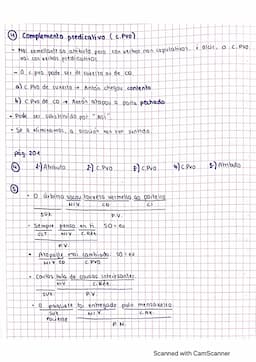 ⑪ Complemento predicativo (C.Pvo)
- Moi semellante ao atributo pero con verbos non copulativos, é dicir, o C.Pvo
vai con verbos predicativos.
- O C.pvo pode ser de suxeito ou de CD.
a) C.Pvo de suxeito → Antón chegou contento
b) C.Pvo de CD → Antón atopou a porta pechada
- Pode ser substituído por "así"
- Se o eliminamos, a oración non ten sentido
páx 201
④ 1) Atributo 2) C.Pvo 3) C.Pvo 4) C.Pvo 5) Atributo
⑤
- O árbitro sacou tarxeta vermella ao porteiro
N.V CD CI
SUX P.V.
- Sempre penso en ti. SO = eu
CCT N.V C.Réx.
P.V.
- Atopeite moi cambiado. SO = eu
N.V CD C.Pvo
- Carlos fala de cousas interesantes.
N.V C.Réx.
SUX P.V.
- O paquete foi entregado polo mensaxeiro
SUX N.V C.Ax.
P.V.
Scanned with CamScanner